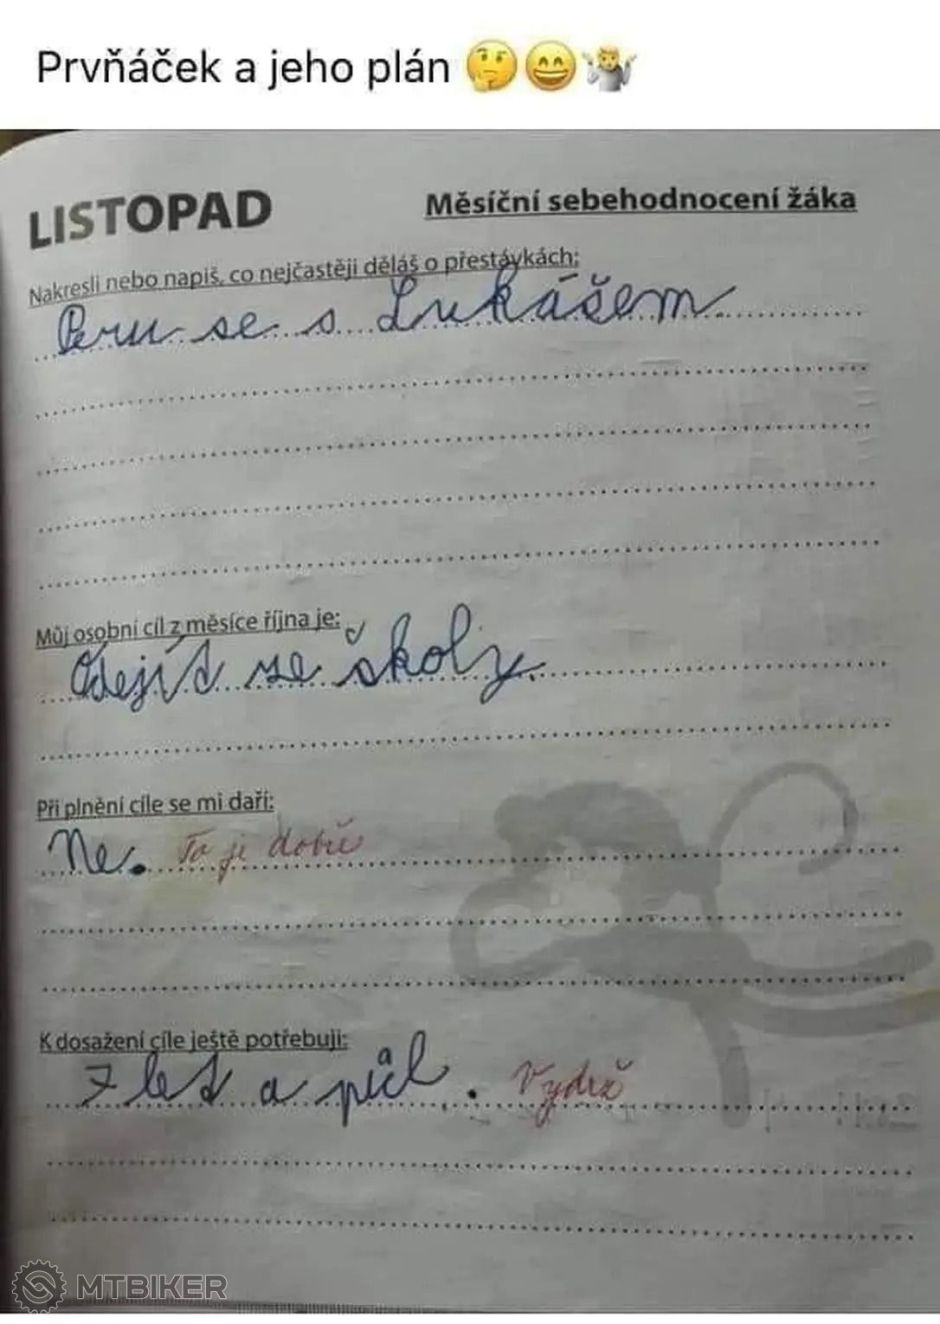 Prvňáček a jeho plán 🤔😄🤷‍♂️
LISTOPAD
Měsíční sebehodnocení žáka
Nakresli nebo napiš, co nejčastěji děláš o přestávkách:
Peru se s Lukášem
Můj osobní cíl z měsíce října je:
Odejít ze školy.
Při plnění cíle se mi daří:
Ne. To je dobře
K dosažení cíle ještě potřebuji:
7 let a půl. Vydrž
MTBIKER